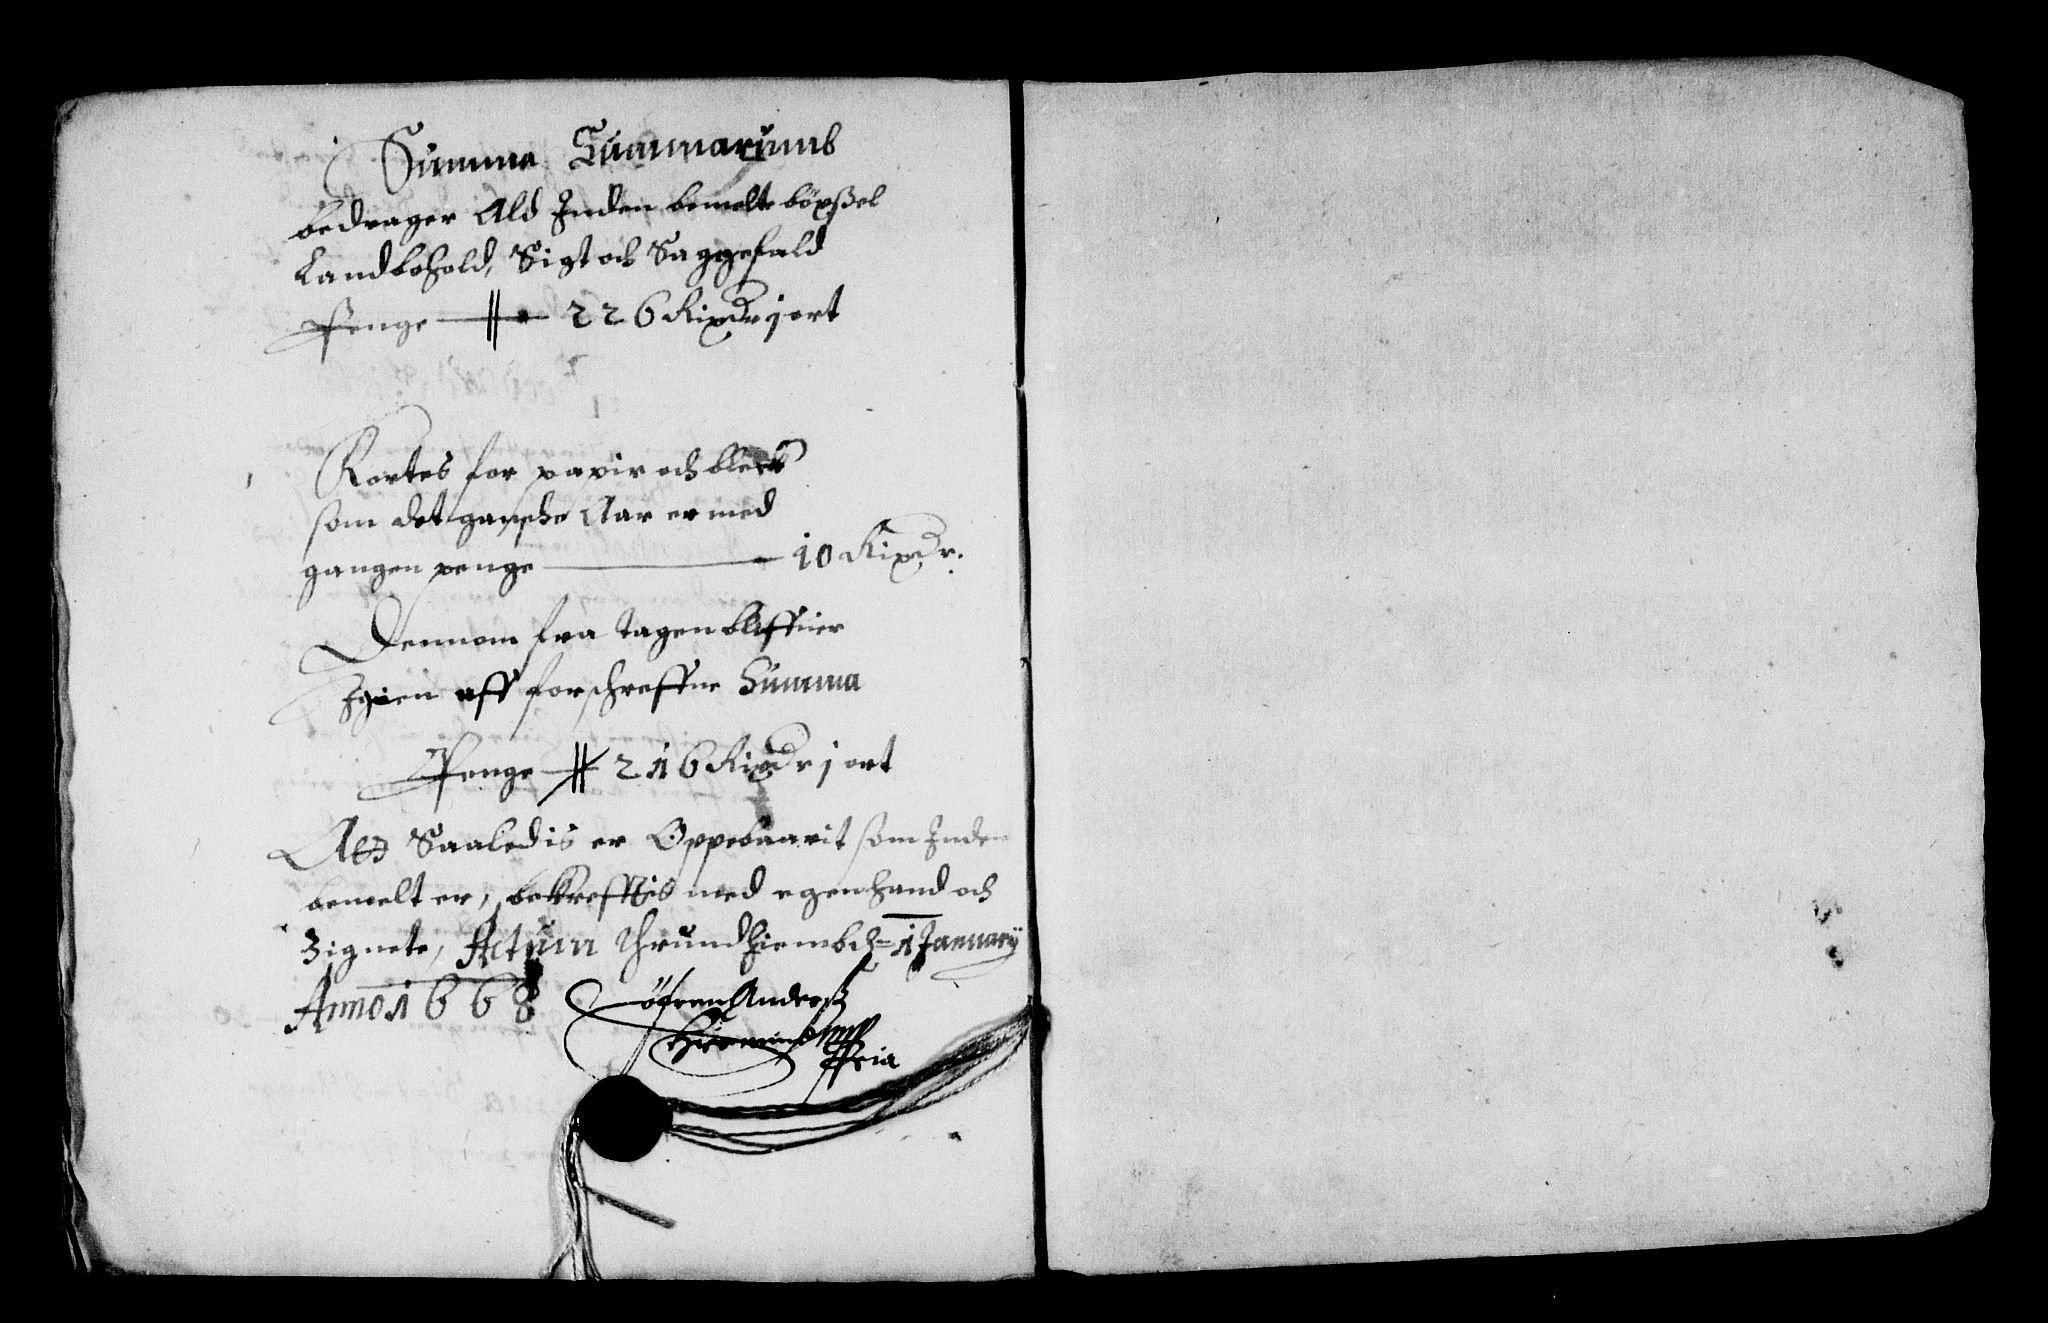 Summa Summarums
bedrager Ald Inden bemelte böxßel
Landbohold, Sigt och Saggefald
Penge 226 Rixdr j ort
Kortes for papir och bleck
som det gandsche Aar er med
gangen penge 10 Rixdr.
Dennom fra tagen bliffuer
Igien aff forschreffne Summa
Penge 216 Rixdr j ort
Att Saaledis er Oppebaarit som Inden
bemelt er, bekrefftis med egen hand och
Zignete, Actum Thrundhiemb 1 January
Anno 1668 Anderß